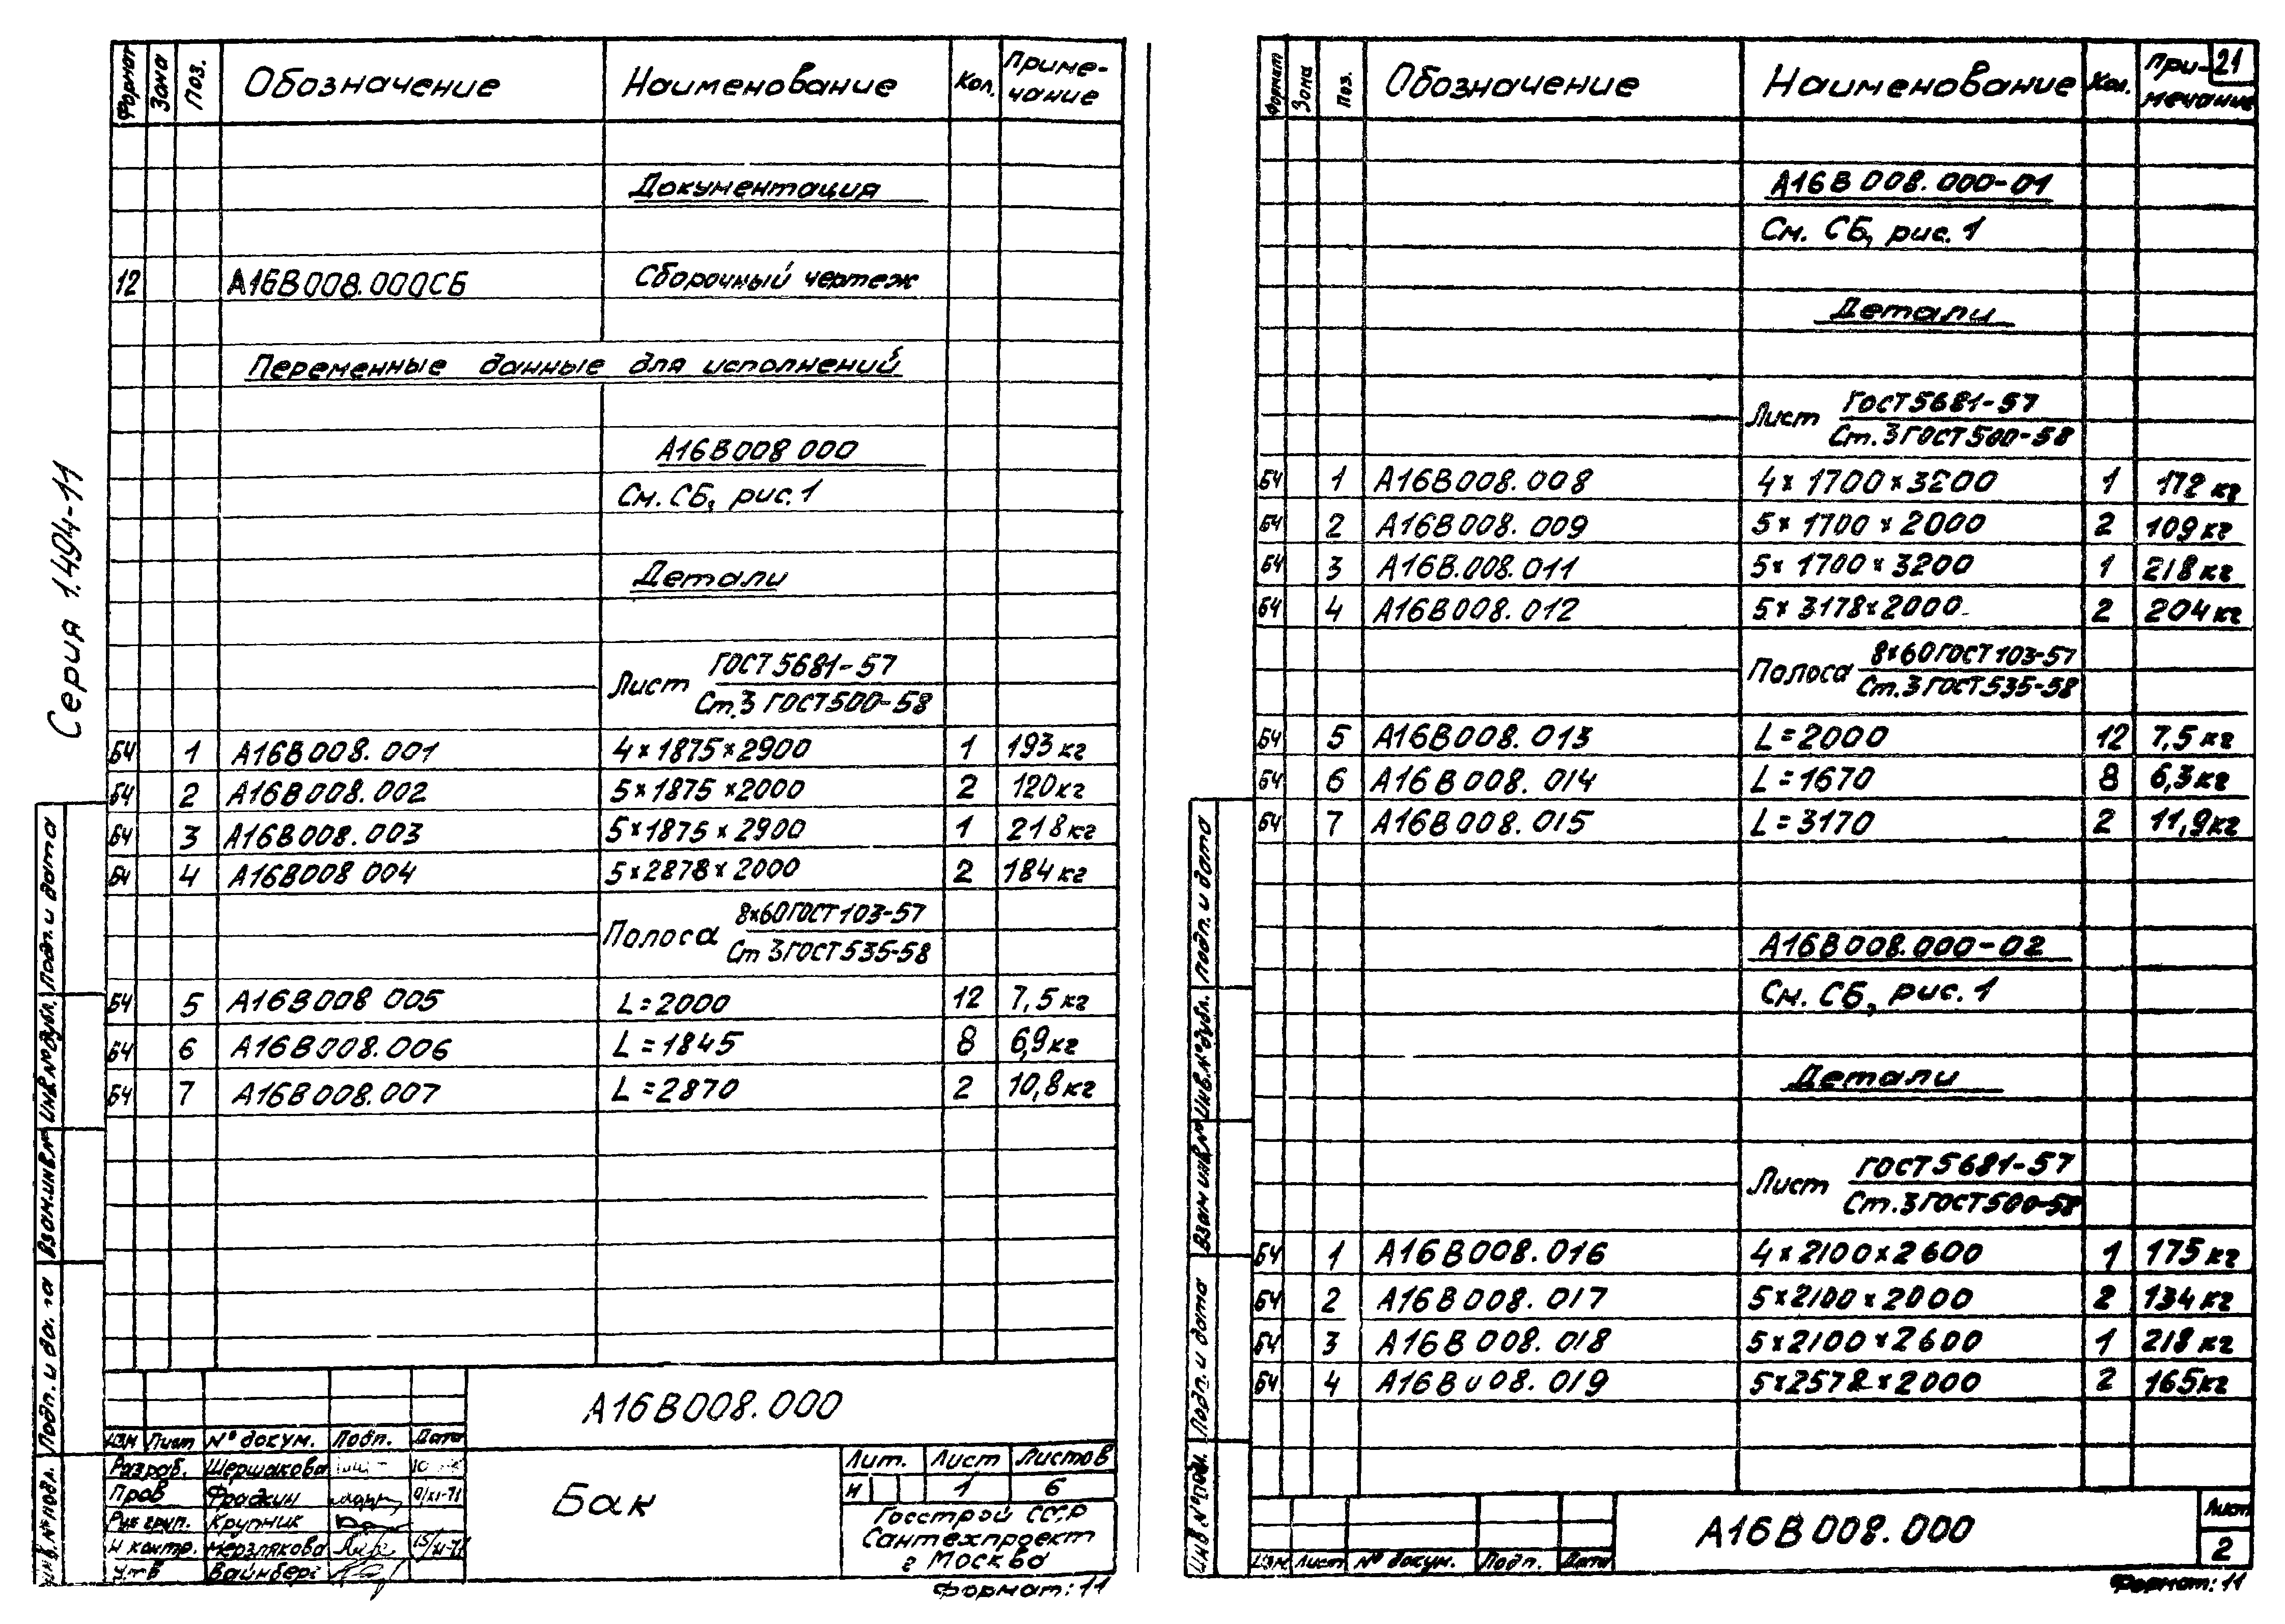 Серия 1.494-11
Формат Зона Поз. Обозначение Наименование Кол. Приме-
чание
Документация
12 А16В008.000СБ Сборочный чертеж
Переменные данные для исполнений
А16В008 000
См. СБ, рис. 1
Детали
Лист ГОСТ 5681-57
Ст.3 ГОСТ 500-58
БЧ 1 А16В008.001 4×1875×2900 1 193 кг
БЧ 2 А16В008.002 5×1875×2000 2 120 кг
БЧ 3 А16В008.003 5×1875×2900 1 218 кг
БЧ 4 А16В008 004 5×2878×2000 2 184 кг
Полоса 8×60 ГОСТ 103-57
Ст 3 ГОСТ 535-58
БЧ 5 А16В008 005 L=2000 12 7,5 кг
БЧ 6 А16В008.006 L=1845 8 6,9 кг
БЧ 7 А16В008.007 L=2870 2 10,8 кг
Подп. и дата
Инв № дубл.
Взам.инв.№
Подп. и дата
Инв. № подл.
А16В008.000
Изм Лист № докум. Подп. Дата
Разраб. Шершакова
Пров Фрадкин 9/XI-71
Рук груп. Крупник
Н контр. Мерзлякова 15/XI-71
Утв Вайнберг
Бак
Лит. Лист Листов
И 1 6
Госстрой СССР
Сантехпроект
г Москва
Формат: 11
21
Формат Зона Поз. Обозначение Наименование Кол. При-
мечание
А16В008.000-01
См. СБ, рис. 1
Детали
Лист ГОСТ 5681-57
Ст.3 ГОСТ 500-58
БЧ 1 А16В008.008 4×1700×3200 1 172 кг
БЧ 2 А16В008.009 5×1700×2000 2 109 кг
БЧ 3 А16В.008.011 5×1700×3200 1 218 кг
БЧ 4 А16В008.012 5×3178×2000 2 204 кг
Полоса 8×60 ГОСТ 103-57
Ст.3 ГОСТ 535-58
БЧ 5 А16В008.013 L=2000 12 7,5 кг
БЧ 6 А16В008.014 L=1670 8 6,3 кг
БЧ 7 А16В008.015 L=3170 2 11,9 кг
А16В008.000-02
См. СБ, рис. 1
Детали
Лист ГОСТ 5681-57
Ст.3 ГОСТ 500-58
БЧ 1 А16В008.016 4×2100×2600 1 175 кг
БЧ 2 А16В008.017 5×2100×2000 2 134 кг
БЧ 3 А16В008.018 5×2100×2600 1 218 кг
БЧ 4 А16В008.019 5×2578×2000 2 165 кг
Подп. и дата
Инв.№ дубл.
Взам инв.№
Подп. и дата
Инв № подл.
Изм Лист № докум. Подп. Дата
А16В008.000
Лист
2
Формат: 11